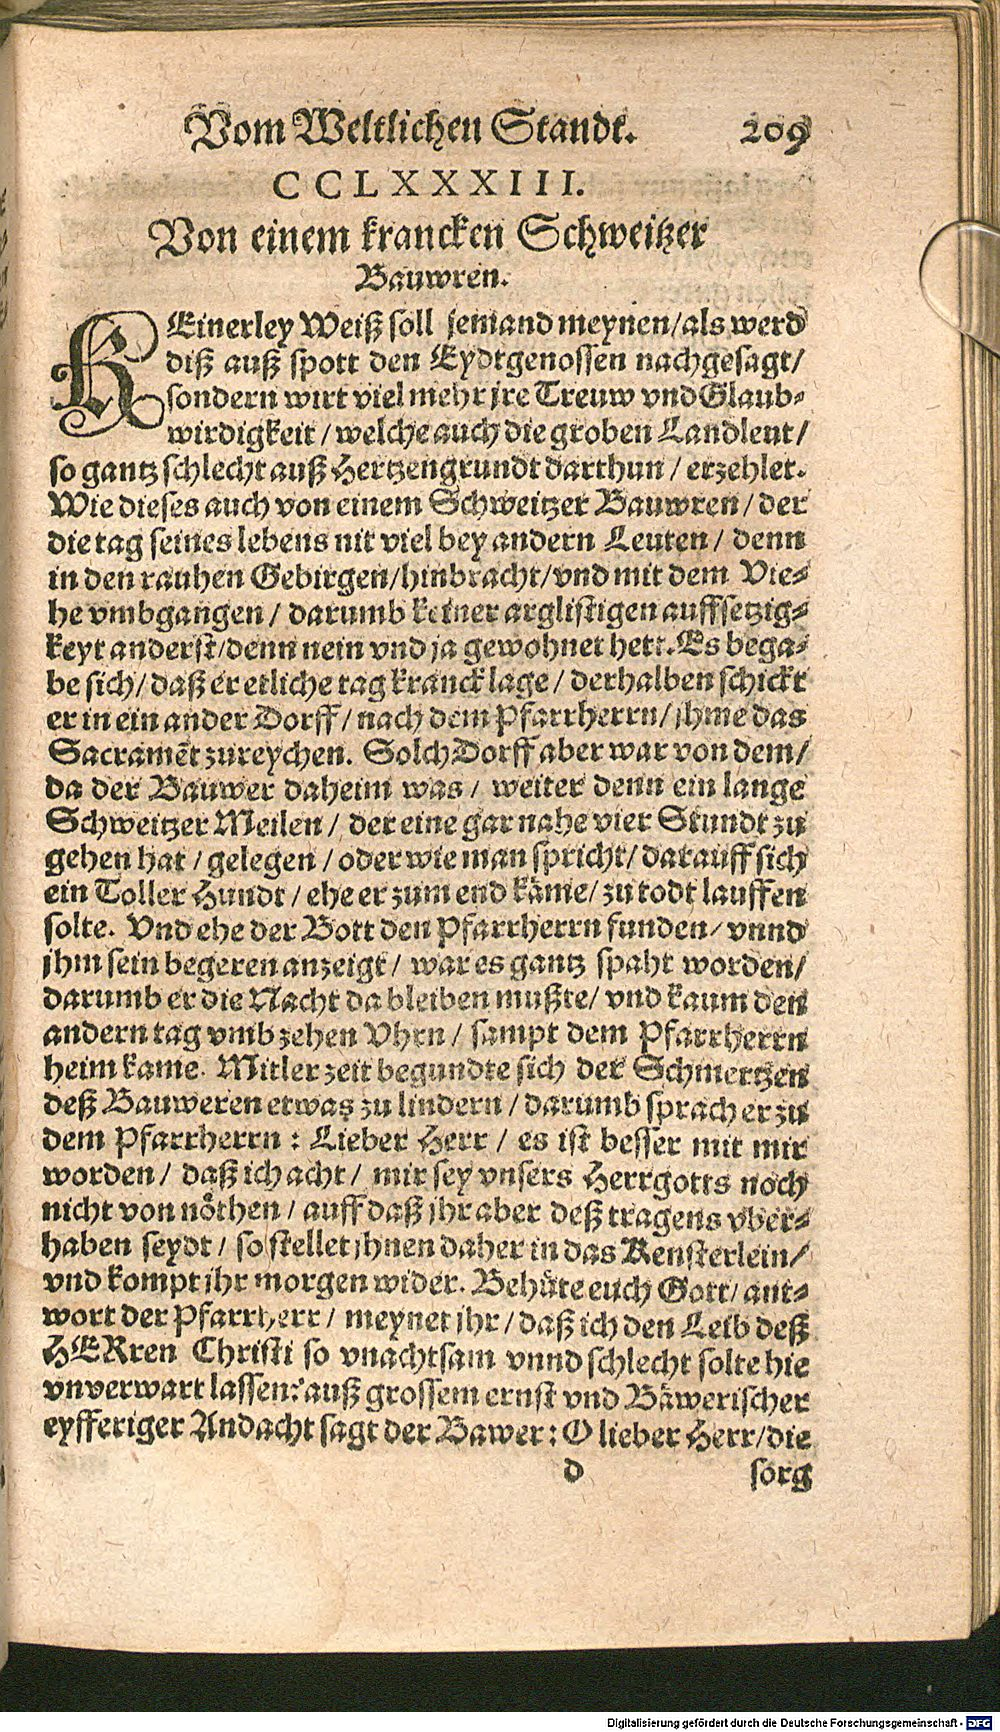 Vom Weltlichen Standt. 209
CCLXXXIII.
Von einem krancken Schweitzer
Bauwren.
KEinerley Weiß soll jemand meynen/als werd
diß auß spott den Eydtgenossen nachgesagt/
sondern wirt viel mehr jre Treuw vnd Glaub-
wirdigkeit / welche auch die groben Landleut /
so gantz schlecht auß Hertzengrundt darthun / erzehlet.
Wie dieses auch von einem Schweitzer Bauwren / der
die tag seines lebens nit viel bey andern Leuten / denn
in den rauhen Gebirgen/hinbracht/vnd mit dem Vie-
he vmbgangen / darumb keiner arglistigen auffsetzig-
keyt anderst/denn nein vnd ja gewohnet hett. Es bega-
be sich/ daß er etliche tag kranck lage / derhalben schickt
er in ein ander Dorff / nach dem Pfarrherrn/ jhme das
Sacramẽt zureychen. Solch Dorff aber war von dem/
da der Bauwer daheim was / weiter denn ein lange
Schweitzer Meilen / der eine gar nahe vier Stundt zu
gehen hat / gelegen / oder wie man spricht/ darauff sich
ein Toller Hundt / ehe er zum end käme/ zu todt lauffen
solte. Vnd ehe der Bott den Pfarrherrn funden/ vnnd
jhm sein begeren anzeigt / war es gantz spaht worden/
darumb er die Nacht da bleiben mußte/ vnd kaum den
andern tag vmb zehen Vhrn / sampt dem Pfarrherrn
heim kame. Mitler zeit begundte sich der Schmertzen
deß Bauweren etwas zu lindern / darumb sprach er zu
dem Pfarrherrn : Lieber Herr / es ist besser mit mir
worden / daß ich acht / mir sey vnsers Herrgotts noch
nicht von nöthen / auff daß jhr aber deß tragens vber-
haben seydt / so stellet jhnen daher in das Kensterlein/
vnd kompt jhr morgen wider. Behüte euch Gott/ ant-
wort der Pfarrherr / meynet jhr / daß ich den Leib deß
HERren Christi so vnachtsam vnnd schlecht solte hie
vnverwart lassen? auß grossem ernst vnd Bäwerischer
eyfferiger Andacht sagt der Bawer : O lieber Herr/die
d sorg
Digitalisierung gefördert durch die Deutsche Forschungsgemeinschaft - DFG